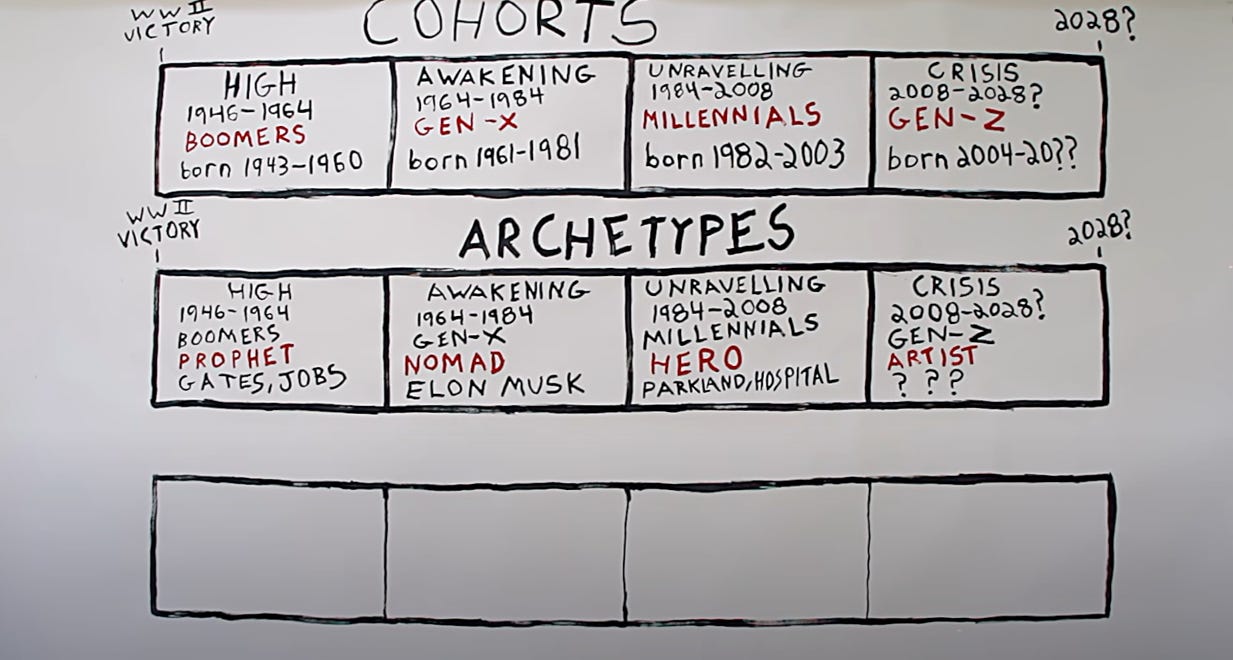 WW II
VICTORY
COHORTS
2028?
HIGH
1946-1964
BOOMERS
born 1943-1960
AWAKENING
1964-1984
GEN-X
born 1961-1981
UNRAVELLING
1984-2008
MILLENNIALS
born 1982-2003
CRISIS
2008-2028?
GEN-Z
born 2004-20??
WW II
VICTORY
ARCHETYPES
2028?
HIGH
1946-1964
BOOMERS
PROPHET
GATES, JOBS
AWAKENING
1964-1984
GEN-X
NOMAD
ELON MUSK
UNRAVELLING
1984-2008
MILLENNIALS
HERO
PARKLAND, HOSPITAL
CRISIS
2008-2028?
GEN-Z
ARTIST
? ? ?